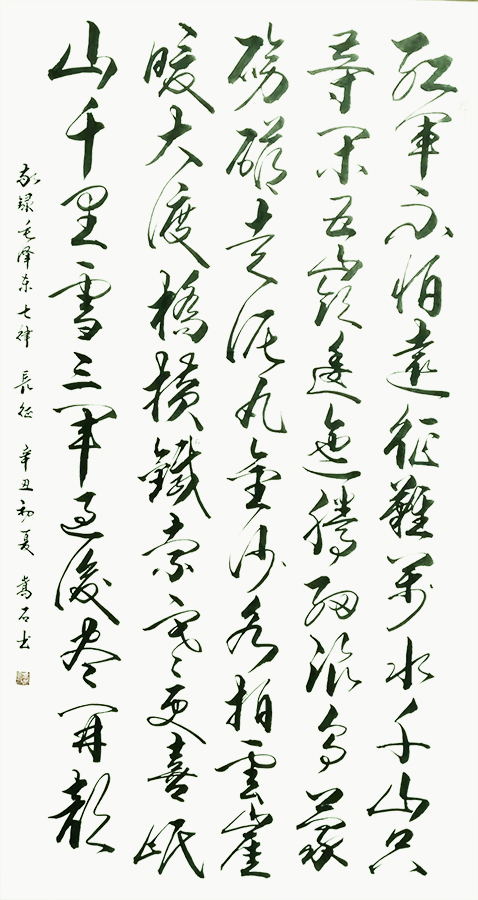 紅軍不怕遠征難萬水千山只
等閑五嶺逶迤騰細浪烏蒙
磅礴走泥丸金沙水拍雲崖
暖大渡橋橫鐵索寒更喜岷
山千里雪三軍過後尽開顏
敬録毛澤東七律 長征 辛丑初夏 嵩石书